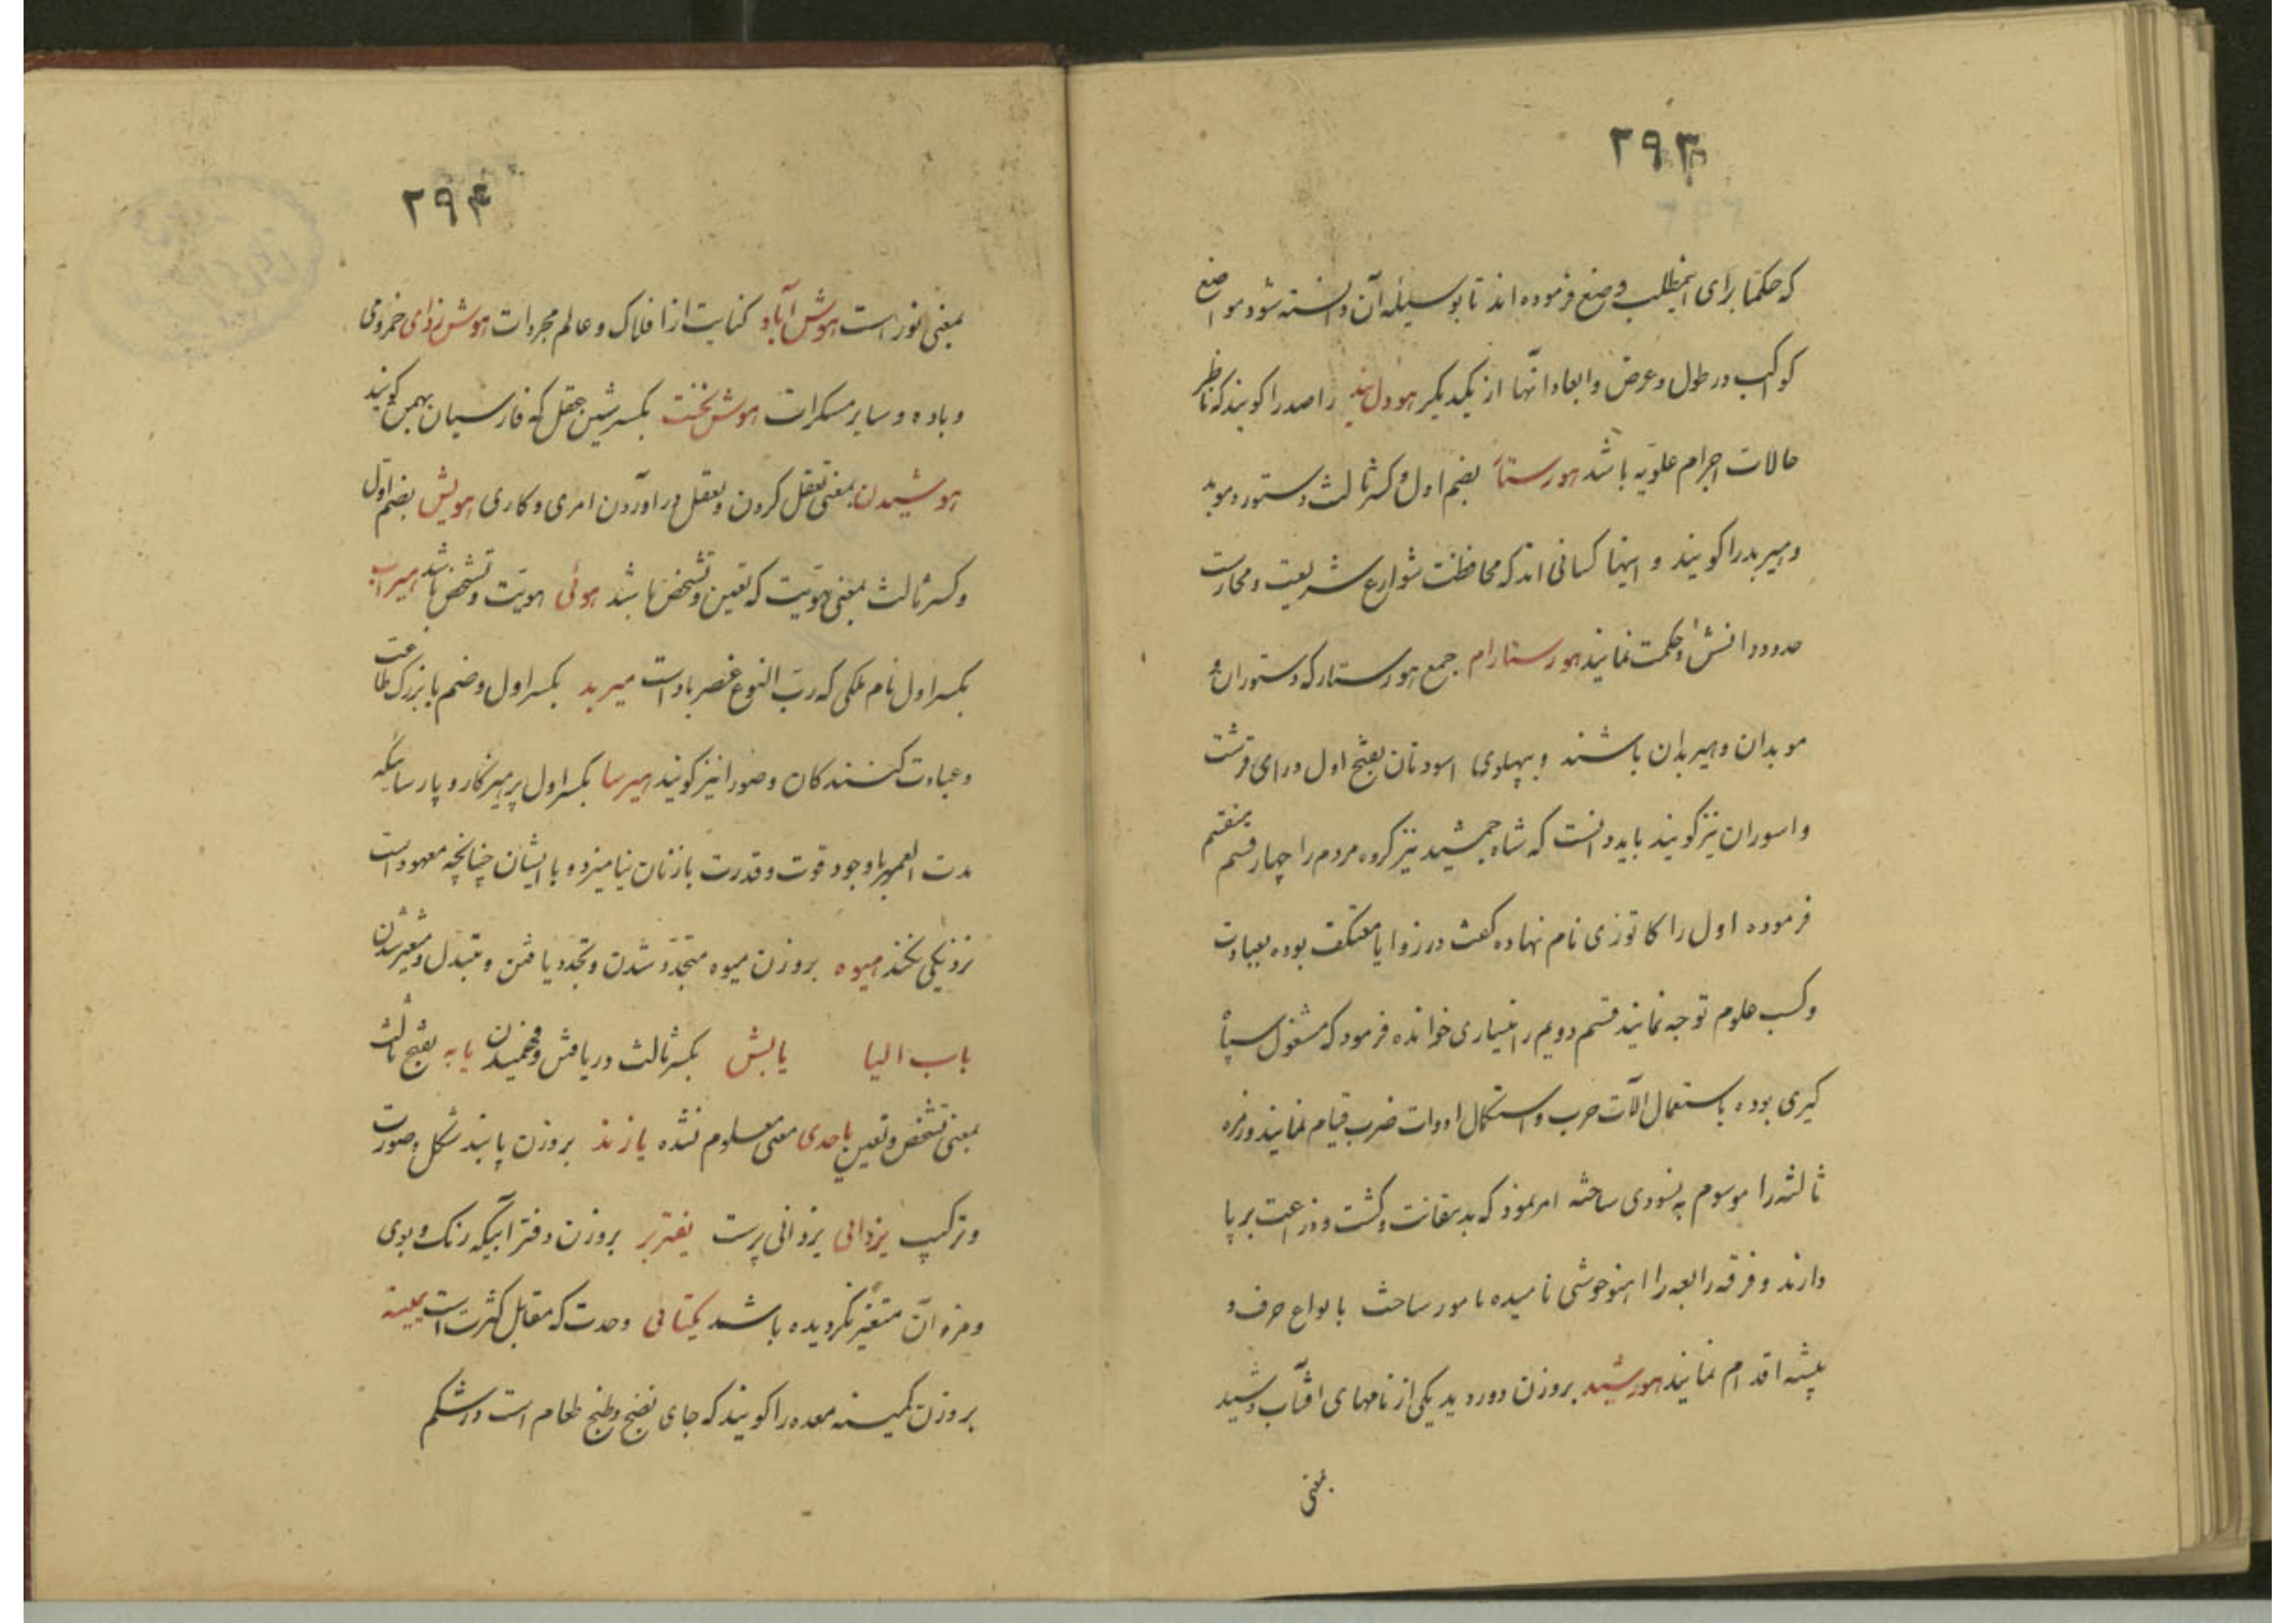 ۲۹۳
که حکما برای اینمطلب وضع فرموده اند تا بوسیله آن دانسته شود مواضع
کواکب در طول و عرض و ابعاد انها از یکدیگر هودل بند راصد را کویند که ناظر
حالات اجرام علویه باشد هورستا بضم اول و کسر ثالث دستور و موبد
و هیربد را کویند و اینها کسانی اند که محافظت شوارع شریعت و محارست
حدود دانش و حکمت نمایند هورستارام جمع هورستار که دستوران و
موبدان و هیربدان باشند و بپهلوی اسورنان بفتح اول و رای قرشت
و اسوران نیز کویند باید دانست که شاه جمشید نیز کروه مردم را چهار قسم منقسم
فرموده اول را کاتوزی نام نهاده کفت در زوایا معتکف بوده بعبادت
و کسب علوم توجه نمایند قسم دویم را نیساری خوانده فرمود که مشغول سپاه
کیری بوده باستعمال آلات حرب و استکمال ادوات ضرب قیام نمایند و زمره
ثالثه را موسوم به نسودی ساخته امر نمود که بدهقانت و کشت و زراعت بر پا
دارند و فرقه رابعه را اهنوخوشی نامیده مامور ساخت بانواع حرف و
پیشه اقدام نمایند هورشید بروزن دوردید یکی از نامهای افتاب و شید
بمعنی
۲۹۴
بمعنی نور است هوش آباد کنایت از افلاک و عالم مجردات هوش زدای خمر و می
و باده و سایر مسکرات هوش نخست بکسر شین عقل که فارسیان بهمن کویند
هوشیدن بمعنی تعقل کردن و بعقل در آوردن امری و کاری هویش بضم اول
و کسر ثالث بمعنی هویت که تعین و تشخص باشد هوئی هویت و تشخص باشد هیراب
بکسر اول نام ملکی که رب النوع عنصر باد است میربد بکسر اول و ضم با بزرک طاعت
و عبادت کنندکان و صور را نیز کویند هیرسا بکسر اول پرهیزکار و پارسائیکه
مدت العمر با وجود قوت و قدرت با زنان نیامیزد و با ایشان چنانچه معهود است
نزدیکی نکند هیوه بروزن میوه متجدد شدن و تجدد یافتن و متبدل و متغیر شدن
باب الیا یابش بکسر ثالث دریافتن و فهمیدن یابه بفتح ثالث
بمعنی تشخص و تعین یاحدی معنی معلوم نشده یازند بروزن پابند شکل و صورت
و ترکیب یزدانی یزدانی پرست یفتربر بروزن دفتر آبیکه رنک و بوی
و مزه آن متغیر نکردیده باشد یکتائی وحدت که مقابل کثرت است یمینه
بروزن کمینه معده را کویند که جای نضج و طبخ طعام است در شکم